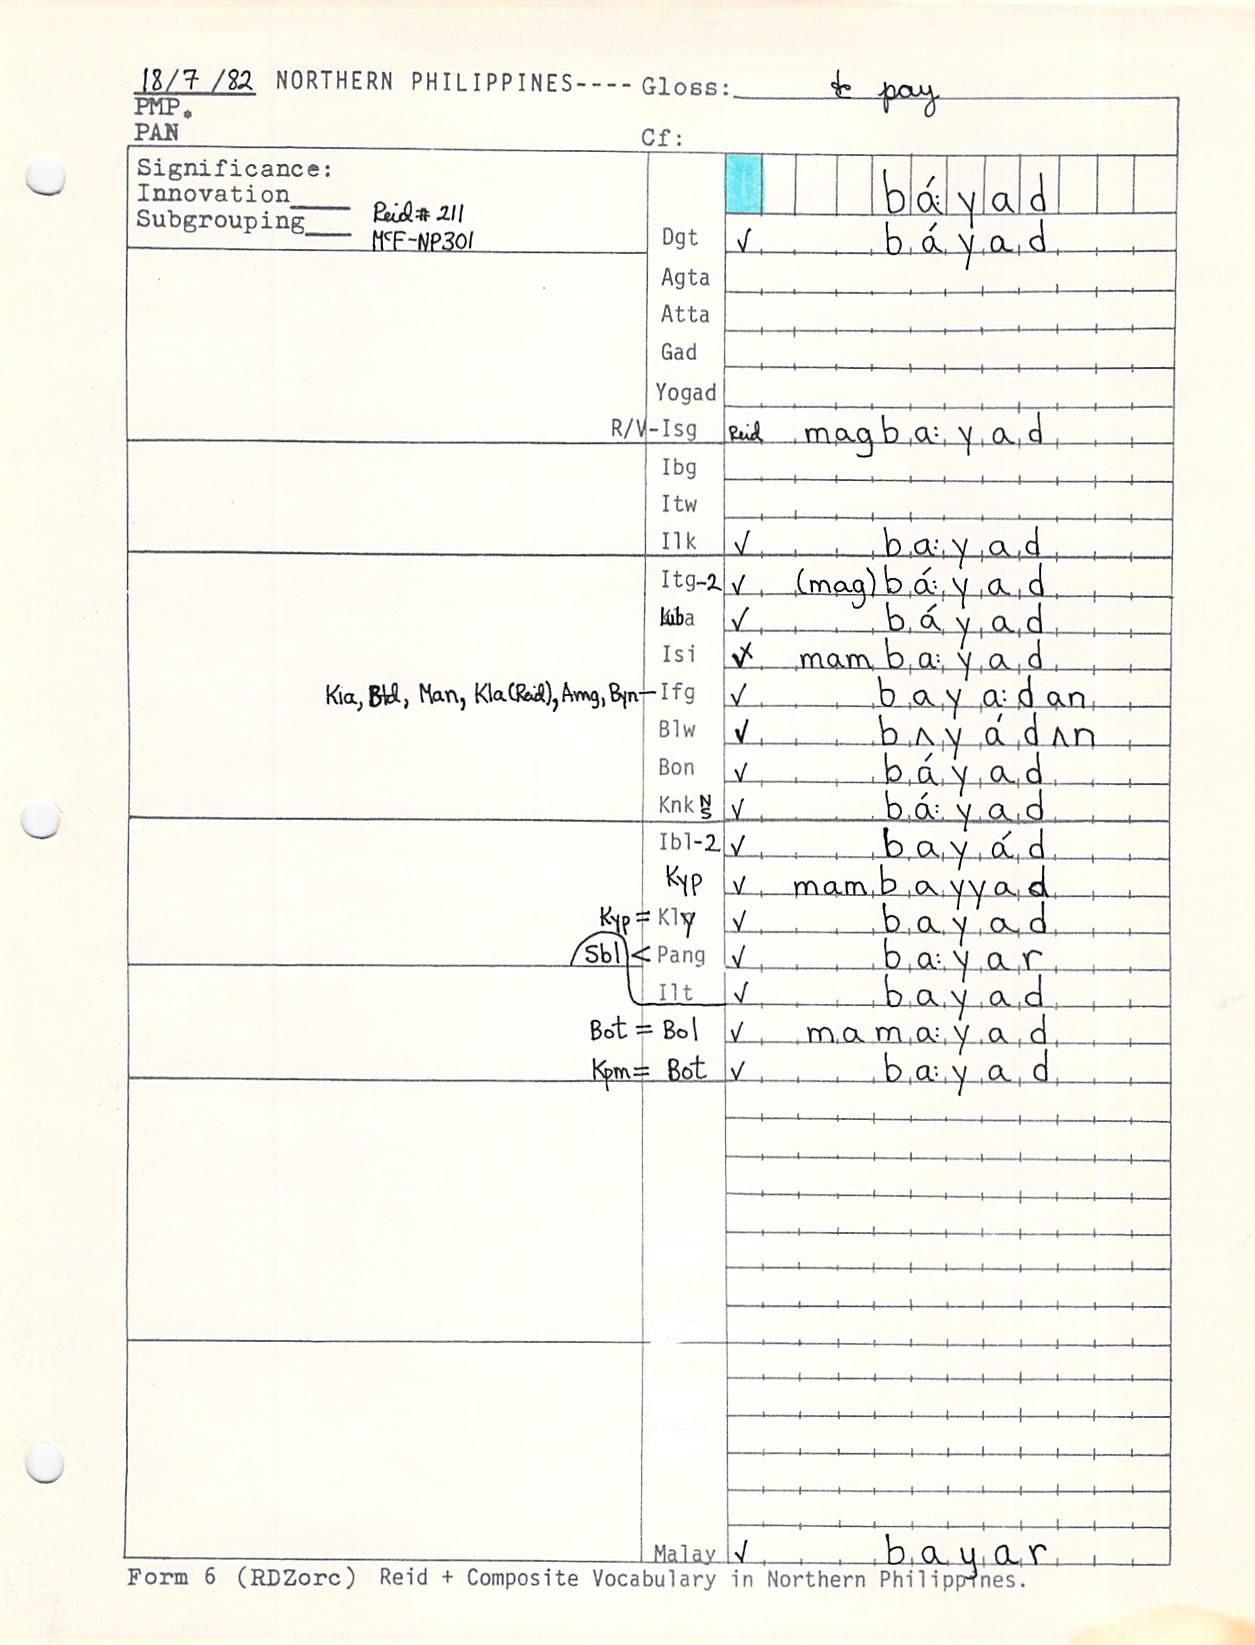 18/7/82 NORTHERN PHILIPPINES---- Gloss: to pay
PMP.
PAN Cf:
Significance:
Innovation____
Subgrouping___
Reid# 211
McF-NP301
bá:yad
Dgt ✓ báyad
Agta
Atta
Gad
Yogad
R/V-Isg Reid magba:yad
Ibg
Itw
Ilk ✓ ba:yad
Itg-2 ✓ (mag)bá:yad
Luba ✓ báyad
Isi mamba:yad
Kia, Btd, Man, Kla(Reid), Amg, Byn-Ifg ✓ baya:dan
Blw ✓ bʌyádʌn
Bon ✓ báyad
Knk N S ✓ bá:yad
Ibl-2 ✓ bayád
Kyp ✓ mambayyad
Kyp = Kly ✓ bayad
Sbl < Pang ✓ ba:yar
Ilt ✓ bayad
Bot = Bol ✓ mama:yad
Kpm = Bot ✓ ba:yad
Malay ✓ bayar
Form 6 (RDZorc) Reid + Composite Vocabulary in Northern Philippines.